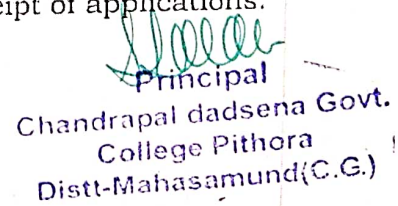 eipt of applications.
Principal
Chandrapal dadsena Govt.
College Pithora
Distt-Mahasamund(C.G.)